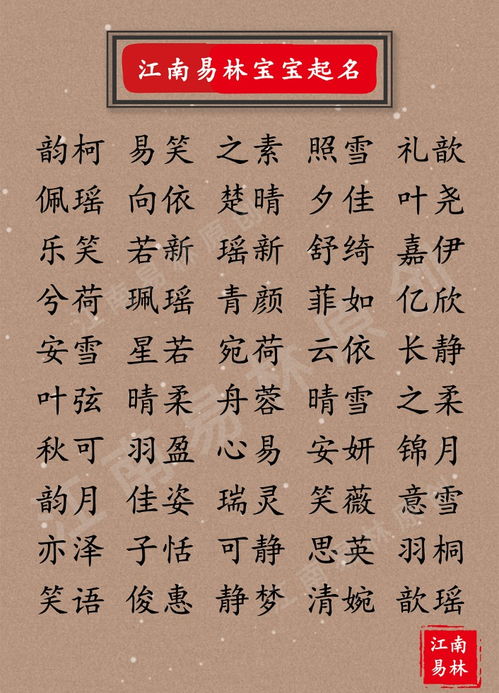 江南易林宝宝起名
韵柯 易笑 之素 照雪 礼歆
佩瑶 向依 楚晴 夕佳 叶尧
乐笑 若新 瑶新 舒绮 嘉伊
兮荷 珮瑶 青颜 菲如 亿欣
安雪 星若 宛荷 云依 长静
叶弦 晴柔 舟蓉 晴雪 之柔
秋可 羽盈 心易 安妍 锦月
韵月 佳姿 瑞灵 笑薇 意雪
亦泽 子恬 可静 思英 羽桐
笑语 俊惠 静梦 清婉 歆瑶
江南易林原创
江南易林原创
江南易林原创
江南
易林